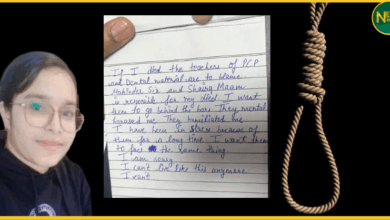 N
If I died the teachers of PCP
and Dental material are to blame
Mahinder Sir and Shairg Maam
is responsible for my death I want
them to go behind the bars. They mentally
harassed me. They humiliated me
I have been in stress because of
them for a long time. I want them
to face the same thing.
I am sorry
I can't live like this anymore.
I want